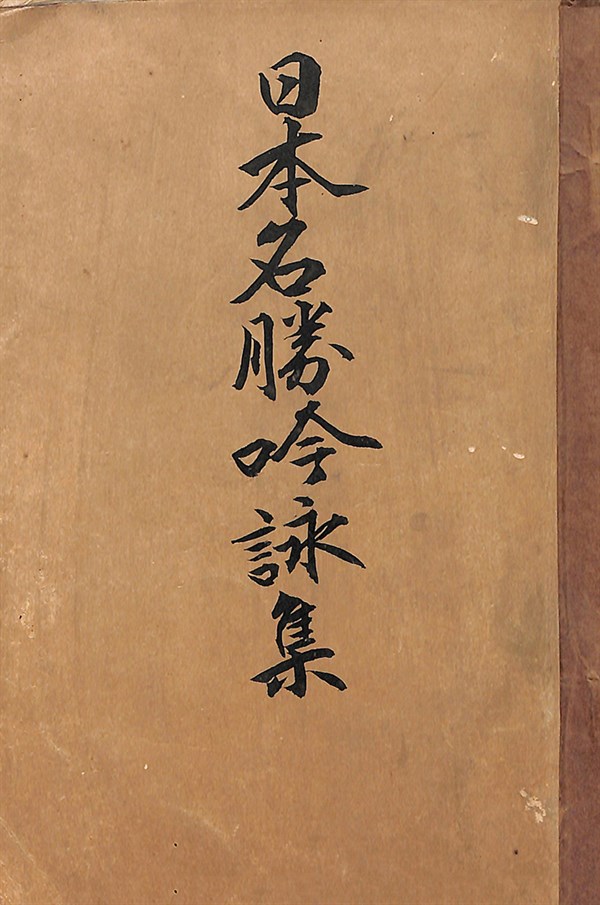 日本名勝吟詠集